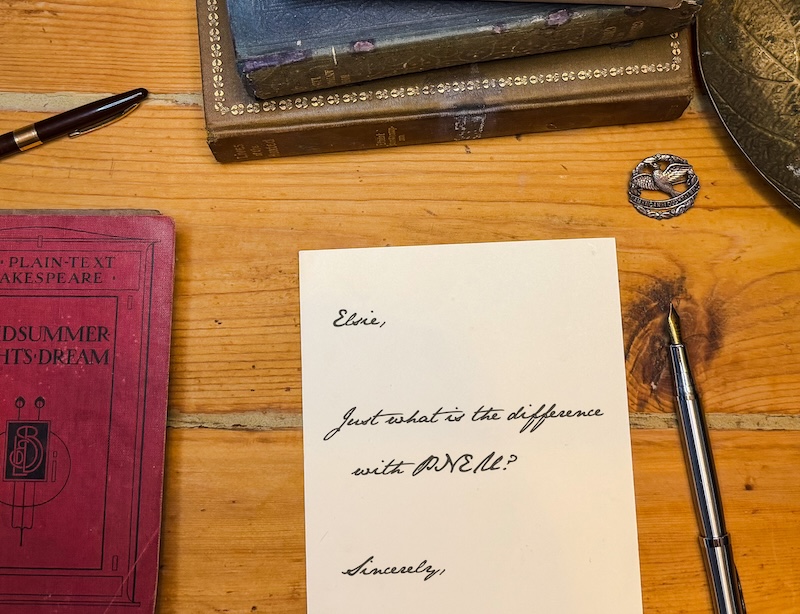 · PLAIN-TEXT
AKESPEARE ·
DSUMMER
HTS·DREAM
Elsie,
Just what is the difference
with PNEU?
Sincerely,